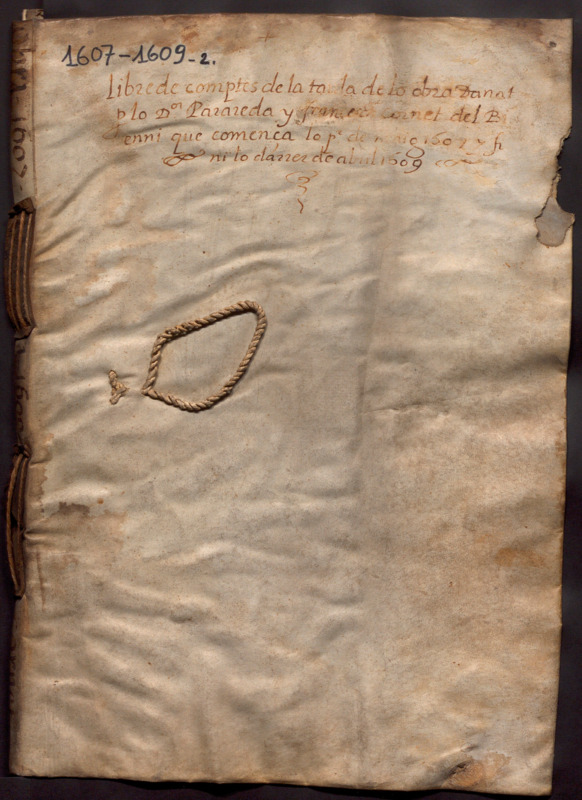 1607-1609-2.
Libre de comptes de la taula de la obra
plo Dor Parareda y frances Cornet del Bi
enni que comença lo pr de maig 1607 y fi
ni lo darrer de abril 1609